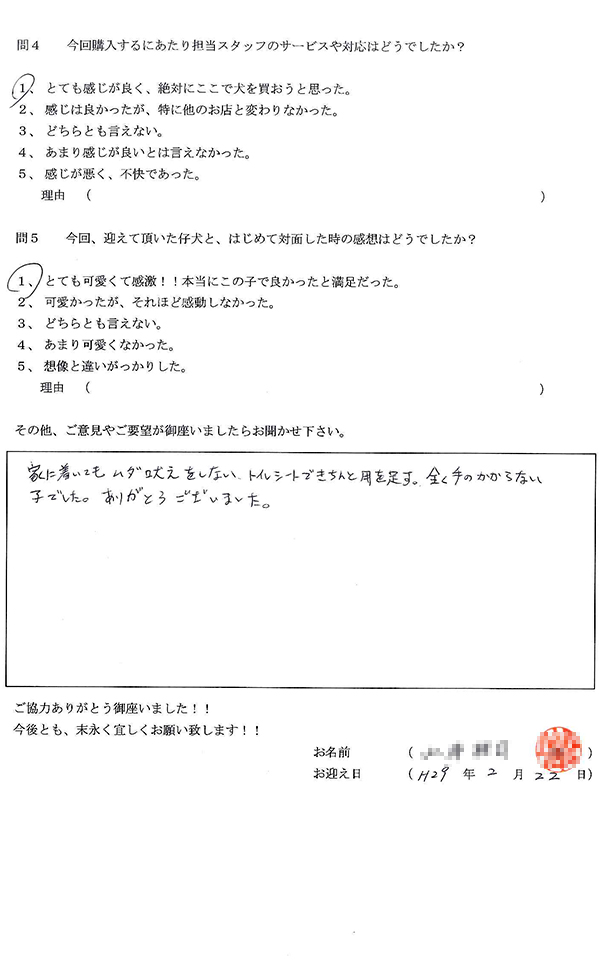 問４　今回購入するにあたり担当スタッフのサービスや対応はどうでしたか？
１、とても感じが良く、絶対にここで犬を買おうと思った。
２、感じは良かったが、特に他のお店と変わりなかった。
３、どちらとも言えない。
４、あまり感じが良いとは言えなかった。
５、感じが悪く、不快であった。
理由　（　　　）
問５　今回、迎えて頂いた仔犬と、はじめて対面した時の感想はどうでしたか？
１、とても可愛くて感激！！本当にこの子で良かったと満足だった。
２、可愛かったが、それほど感動しなかった。
３、どちらとも言えない。
４、あまり可愛くなかった。
５、想像と違いがっかりした。
理由　（　　　）
その他、ご意見やご要望が御座いましたらお聞かせ下さい。
家に着いてもムダ吠えをしない、トイレシートできちんと用を足す。全く手のかからない
子でした。ありがとうございました。
ご協力ありがとう御座いました！！
今後とも、末永く宜しくお願い致します！！
お名前　（　　　）
お迎え日　（H29 年 2 月 22 日）